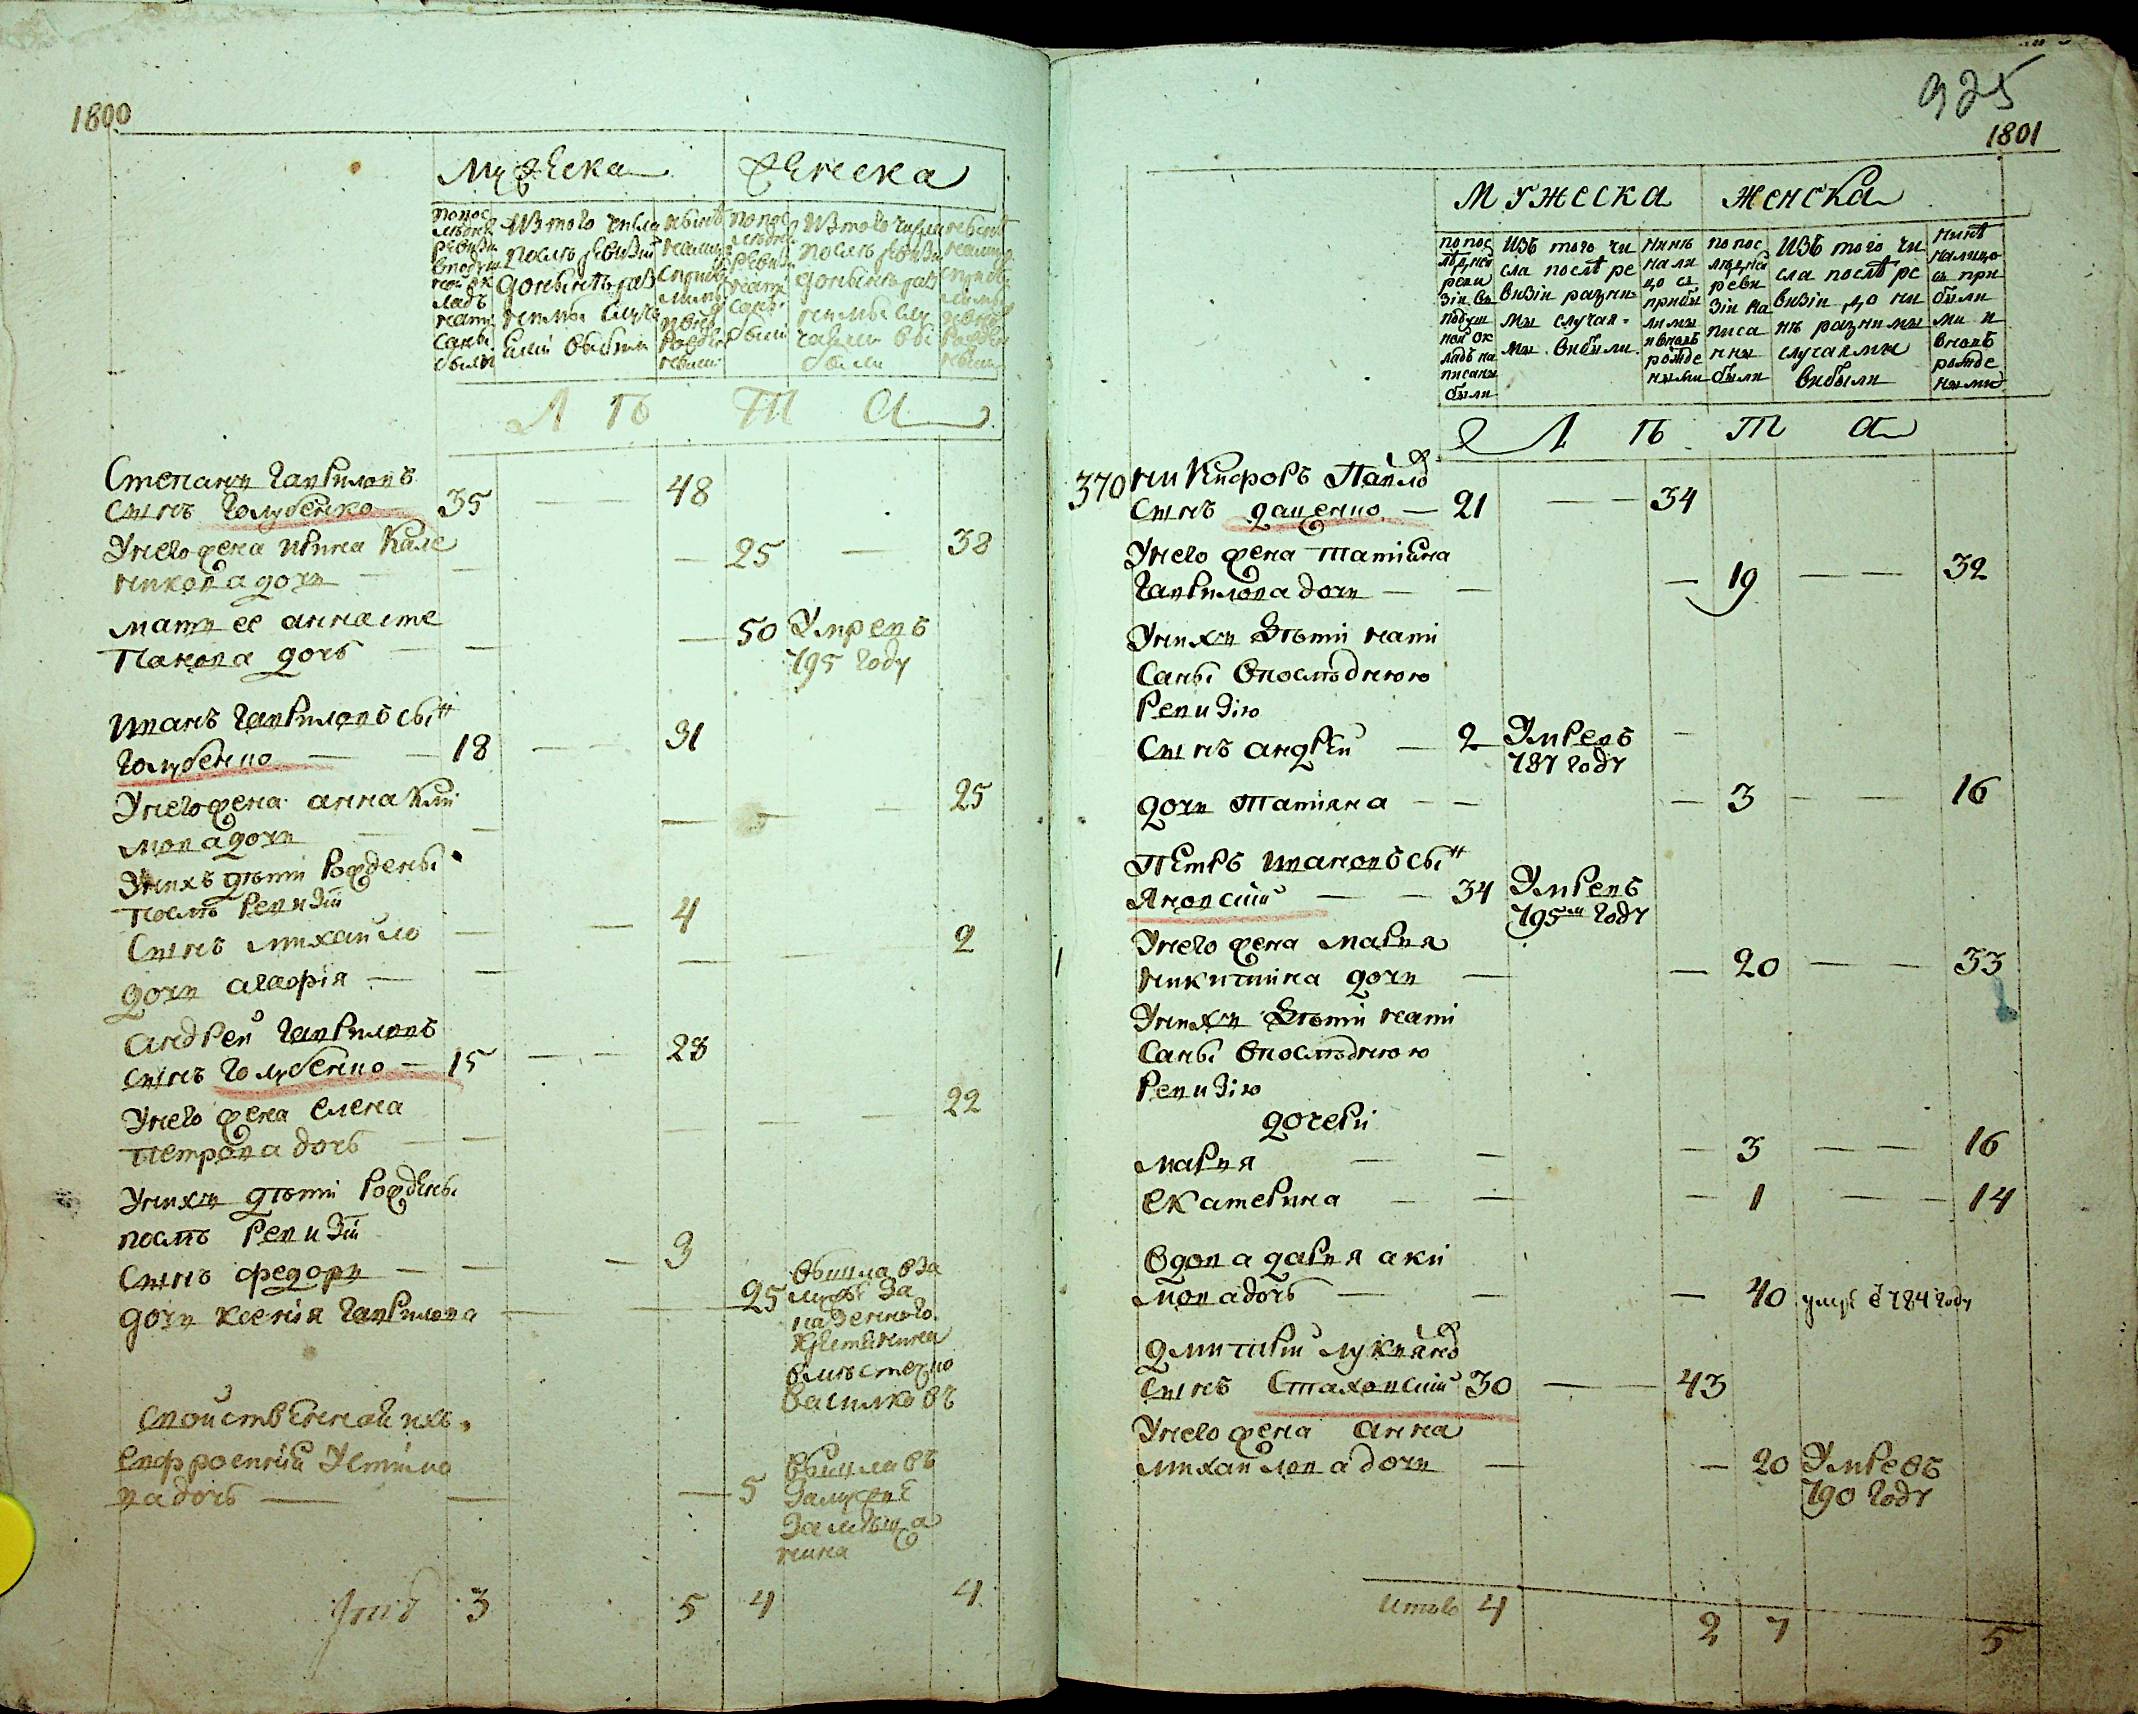 1800
Мужеска Женска
попос
лѣдней
ревизи
вподуш
ной ок
ладъ
напи
саны
были
Изтого числа
послѣ ревизіи
донынѣ раз
ными случа
ями выбыли
нынѣ
налицо
по пос
лѣдней
ревизи
напи
саны
были
Изтого числа
послѣ ревизи
донынѣ раз
ными слу
чаями вы
были
Л Ѣ Т А
Степанъ Гавриловъ
сынъ Голубенко 35 48
Унего жена Ирина Кале
никова дочь 25 38
мати ее анна сте
панова дочь 50 Умревъ
795 году
Иванъ Гавриловъ сынъ
Голубенко 18 31
Унего жена анна Кли
мова дочь 25
Унихъ дѣти рождены
послѣ ревизіи
Сынъ михайло 4
дочь агафія 2
андрей Гавриловъ
сынъ Голубенко 15 28
Унего жена елена
петрова дочь 22
Унихъ дѣти рождены
послѣ ревизіи
Сынъ федоръ 3
дочь ксенія Гаврилова 25 вышла вза
мужъ за
казенного
крестянина
вместечко
василковъ
свойственной ихъ
евфросинія Устимо
ва дочь 5 вышла въ
замужъ
замѣща
нина
Итого 3 5 4 4
925
1801
Мужеска Женска
по пос
лѣдней
реви
зіи въ
подуш
ной ок
ладъ на
писаны
были
Изъ того чи
сла послѣ ре
визіи разни
ми случая
ми вибили
нинѣ
нали
цо съ
приби
лими
и вновь
рожде
ними
по пос
лѣдней
реви
зіи на
писа
нны
били
Изъ того чи
сла послѣ ре
визіи до ни
нѣ разними
случаями
вибыли
нинѣ
налицо
съ при
били
ми и
вновь
рожде
ними
Л Ѣ Т А
370 никифоръ Павлов
сынъ даценко 21 34
Унего жена татіана
Гаврилова дочь 19 32
Унихъ дѣти напи
саны впослѣднюю
ревизію
Сынъ андрей 2 Умревъ
787 году
дочь татіяна 3 16
петръ Ивановъ сынъ
Яновскій 34 Умревъ
795м году
Унего жена марія
никитина дочь 20 33
Унихъ дѣти напи
саны впослѣднюю
ревизію
дочери
марія 3 16
екатерина 1 14
вдова дарія аки
мова дочь 40 умре в 784 году
дмитрій лукянов
сынъ Стаховскій 30 43
Унего жена анна
михайлова дочь 20 Умревъ
790 году
Итого 4 2 7 5